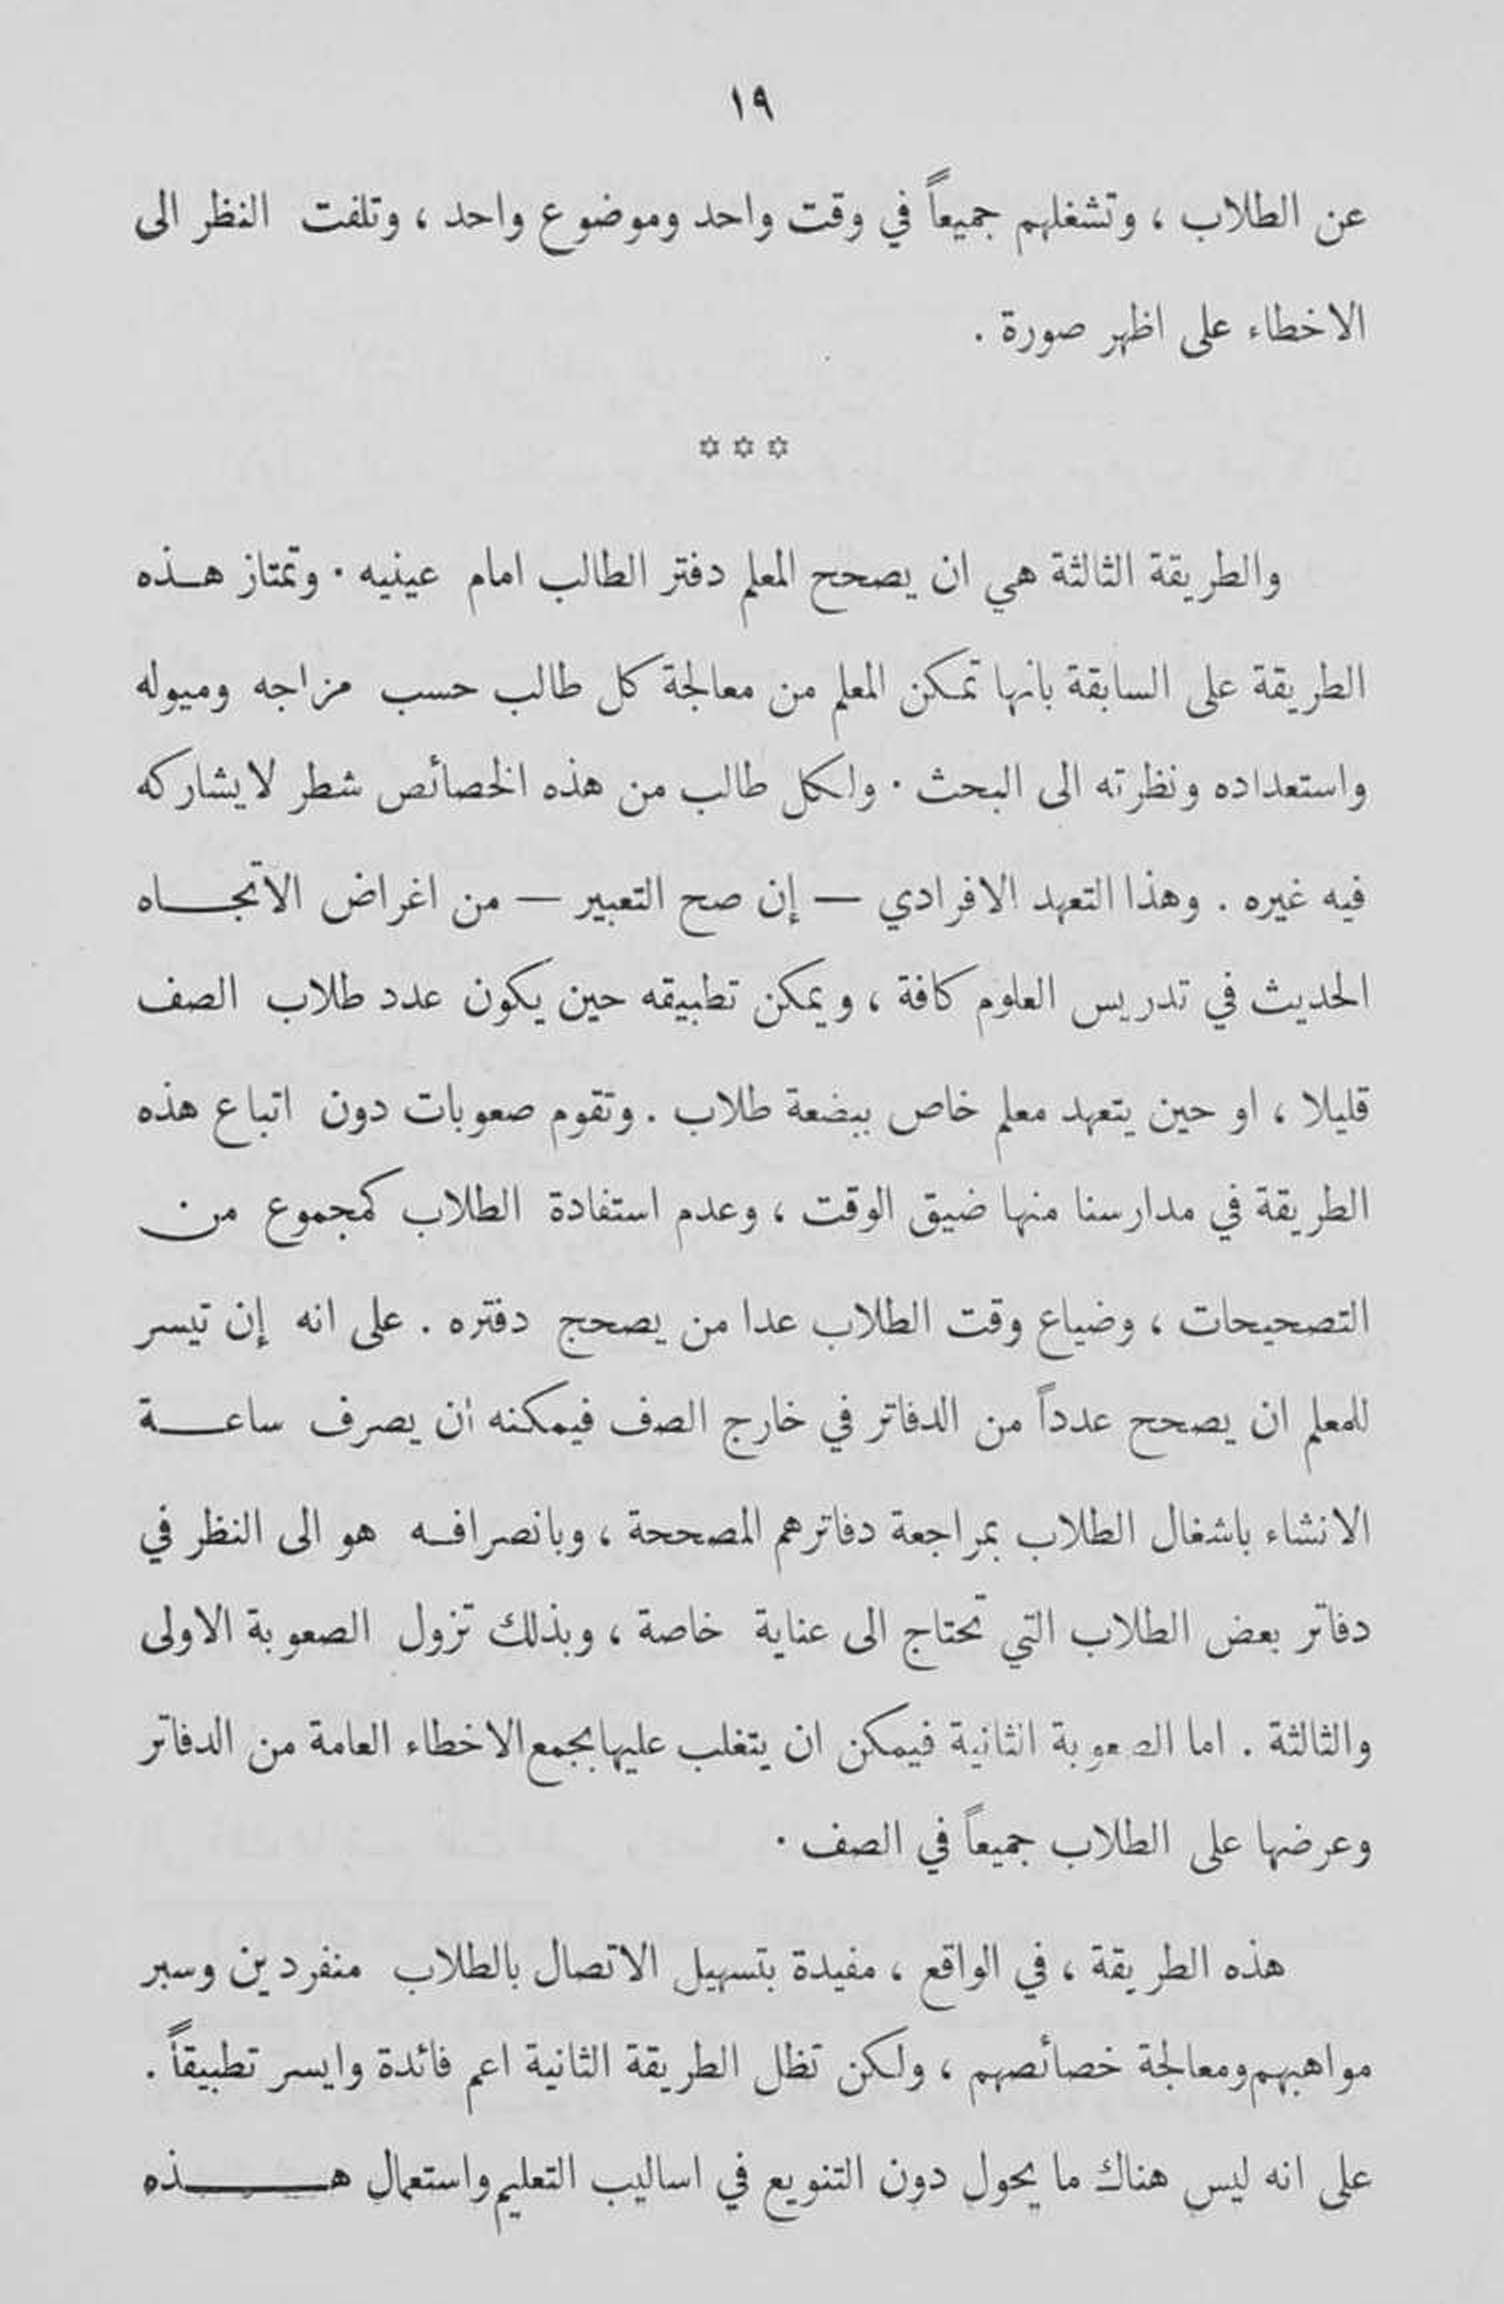 ١٩
عن الطلاب ، وتشغلهم جميعاً في وقت واحد وموضوع واحد ، وتلفت النظر الى
الاخطاء على اظهر صورة .
✡ ✡ ✡
والطريقة الثالثة هي ان يصحح المعلم دفتر الطالب امام عينيه . وتمتاز هذه
الطريقة على السابقة بانها تمكن المعلم من معالجة كل طالب حسب مزاجه وميوله
واستعداده ونظرته الى البحث . ولكل طالب من هذه الخصائص شطر لا يشاركه
فيه غيره . وهذا التعهد الافرادي — إن صح التعبير — من اغراض الاتجاه
الحديث في تدريس العلوم كافة ، ويمكن تطبيقه حين يكون عدد طلاب الصف
قليلا ، او حين يتعهد معلم خاص ببضعة طلاب . وتقوم صعوبات دون اتباع هذه
الطريقة في مدارسنا منها ضيق الوقت ، وعدم استفادة الطلاب كمجموع من
التصحيحات ، وضياع وقت الطلاب عدا من يصحح دفتره . على انه إن تيسر
للمعلم ان يصحح عدداً من الدفاتر في خارج الصف فيمكنه أن يصرف ساعة
الانشاء باشغال الطلاب بمراجعة دفاترهم المصححة ، وبانصرافه هو الى النظر في
دفاتر بعض الطلاب التي تحتاج الى عناية خاصة ، وبذلك تزول الصعوبة الاولى
والثالثة . اما الصعوبة الثانية فيمكن ان يتغلب عليها بجمع الاخطاء العامة من الدفاتر
وعرضها على الطلاب جميعاً في الصف .
هذه الطريقة ، في الواقع ، مفيدة بتسهيل الاتصال بالطلاب منفردين وسبر
مواهبهم ومعالجة خصائصهم ، ولكن تظل الطريقة الثانية اعم فائدة وايسر تطبيقاً .
على انه ليس هناك ما يحول دون التنويع في اساليب التعليم واستعمال هذه